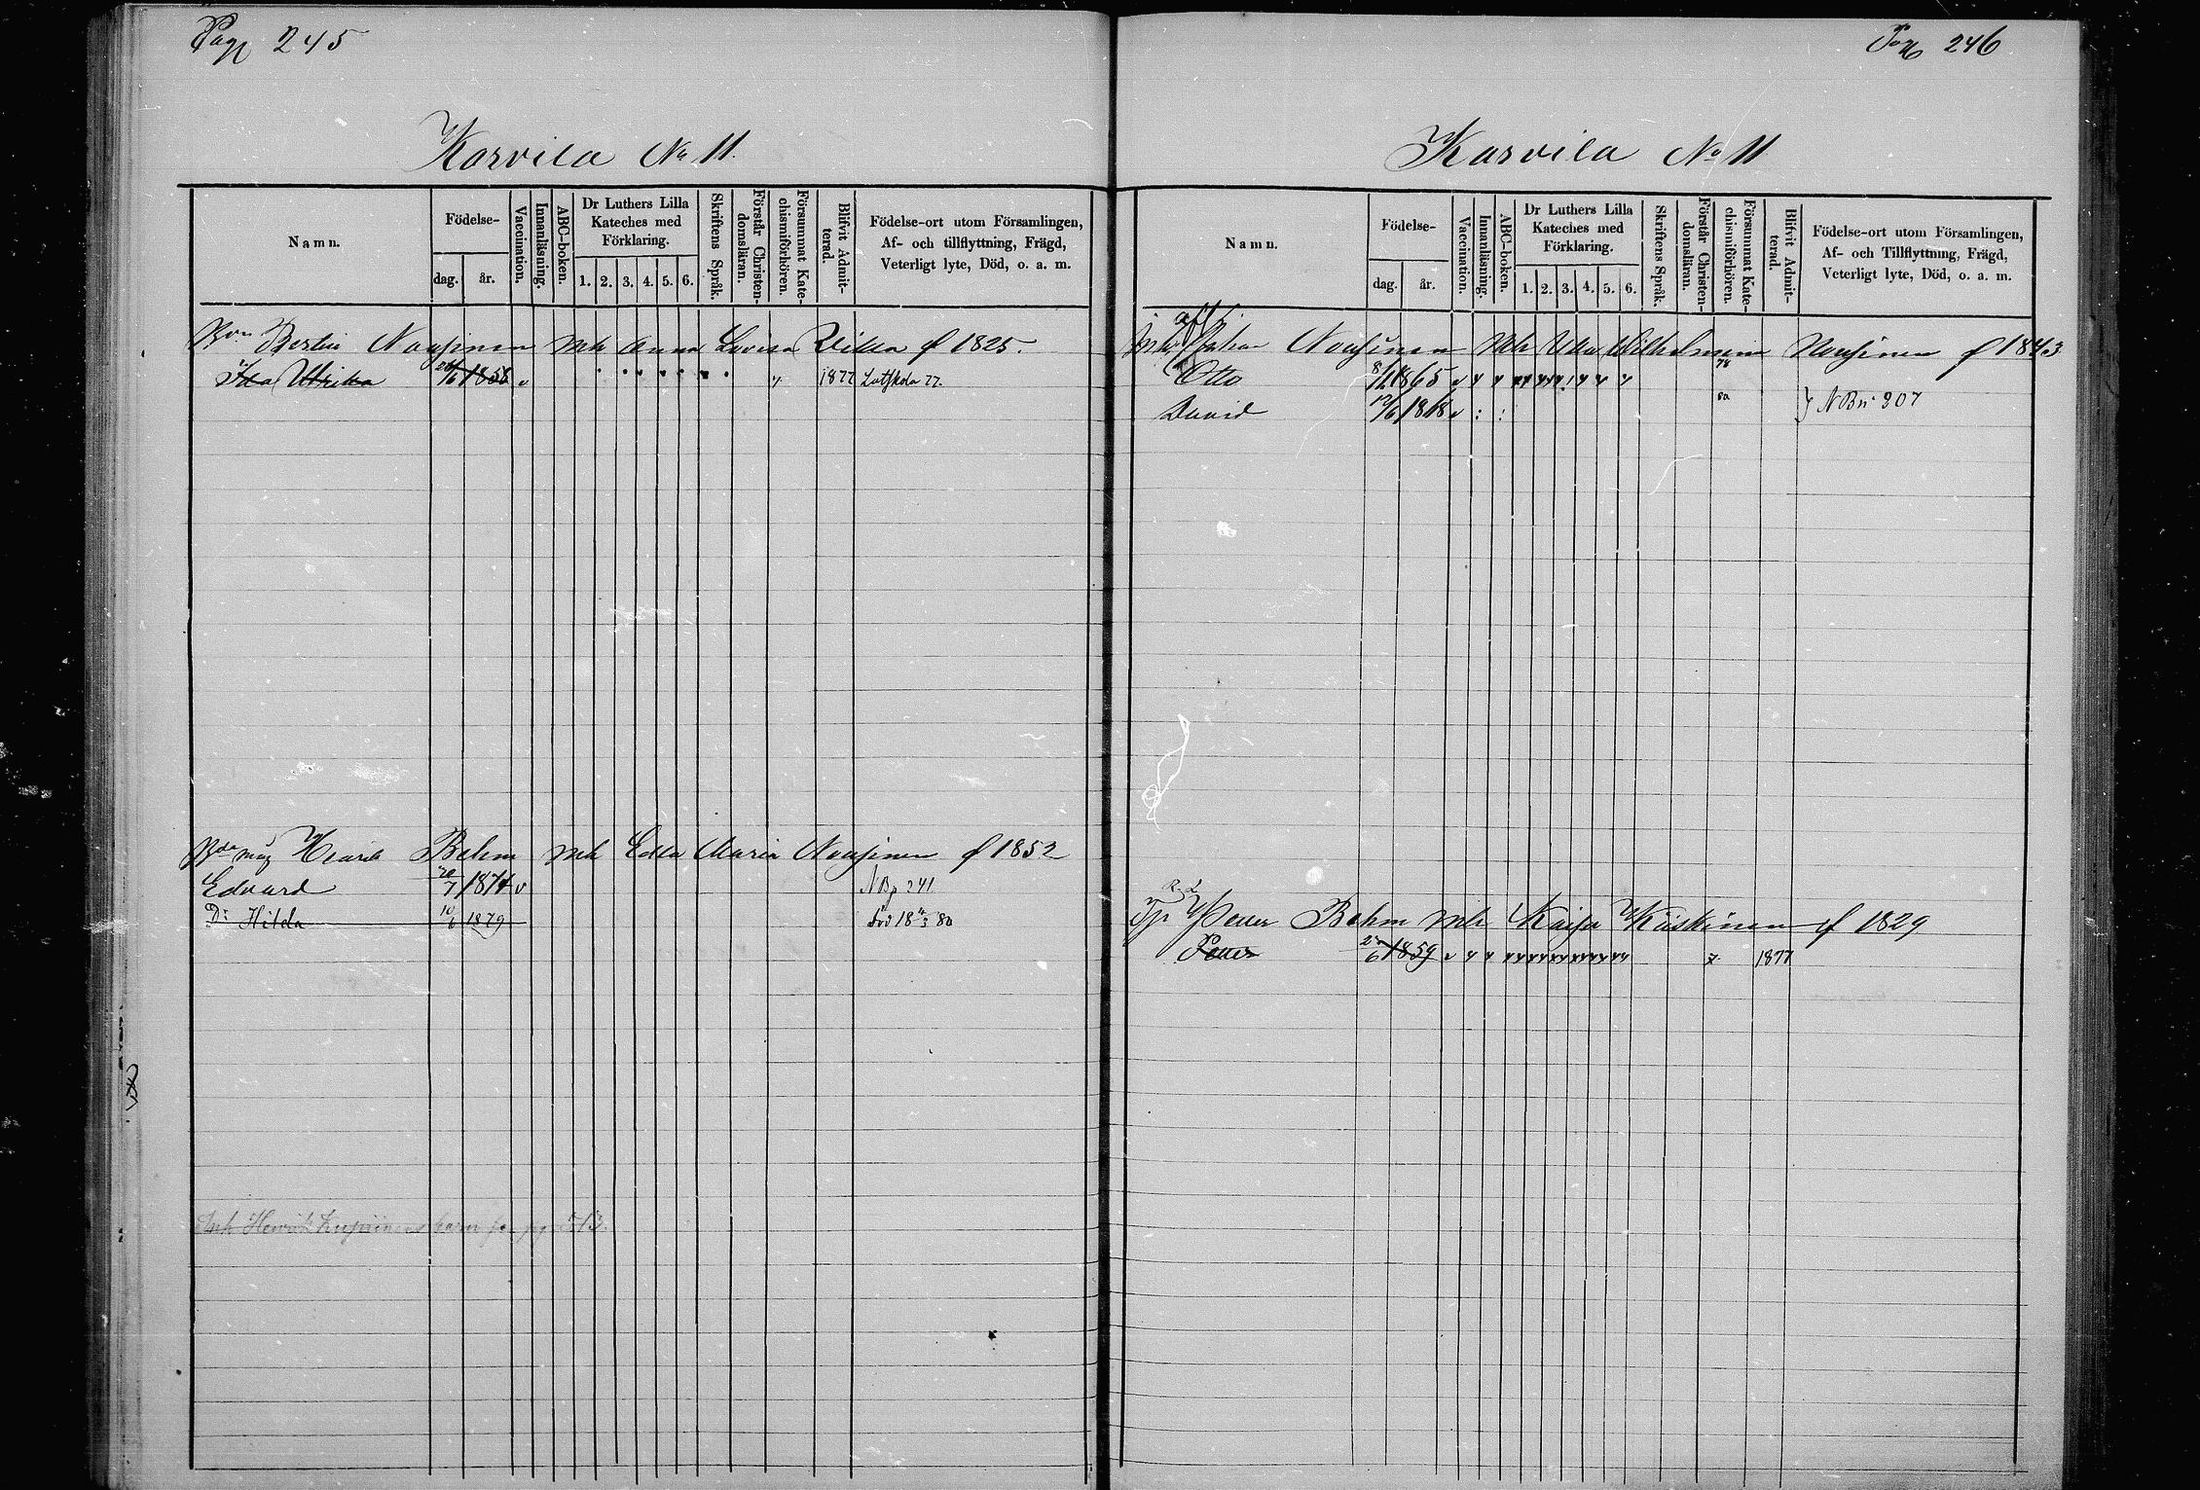 Pag 245
Korvila No 11.
Namn.
Födelse-
dag.
år.
Vaccination.
Innanläsning.
ABC-boken.
Dr Luthers Lilla
Kateches med
Förklaring.
1. 2. 3. 4. 5. 6.
Skriftens Språk.
Förstår Christen-
domsläran.
Försummat Kate-
chismiförhören.
Blifvit Admit-
terad.
Födelse-ort utom Församlingen,
Af- och tillflyttning, Frägd,
Veterligt lyte, Död, o. a. m.
Nousinen mh Anna Lovisa f 1825.
Ida Ulrika 1858 v 1877 77.
Henrik Behm mh Edla Maria Nousinen f 1852
Edvard 20/7 1874 v NBp 241
Dr Hilda 10/6 1879 död 18 80
Henrik
Pag 246
Korvila No 11
Namn.
Födelse-
dag.
år.
Vaccination.
Innanläsning.
ABC-boken.
Dr Luthers Lilla
Kateches med
Förklaring.
1. 2. 3. 4. 5. 6.
Skriftens Språk.
Förstår Christen-
domsläran.
Försummat Kate-
chismiförhören.
Blifvit Admit-
terad.
Födelse-ort utom Församlingen,
Af- och Tillflyttning, Frägd,
Veterligt lyte, Död, o. a. m.
Nousinen Mh Wilhelmina Nousinen f 1843
Otto 1865 78
David 1868 v 80 NBn 207
Petter Behm mh Kaisa f 1829
Petter 1859 v 1877